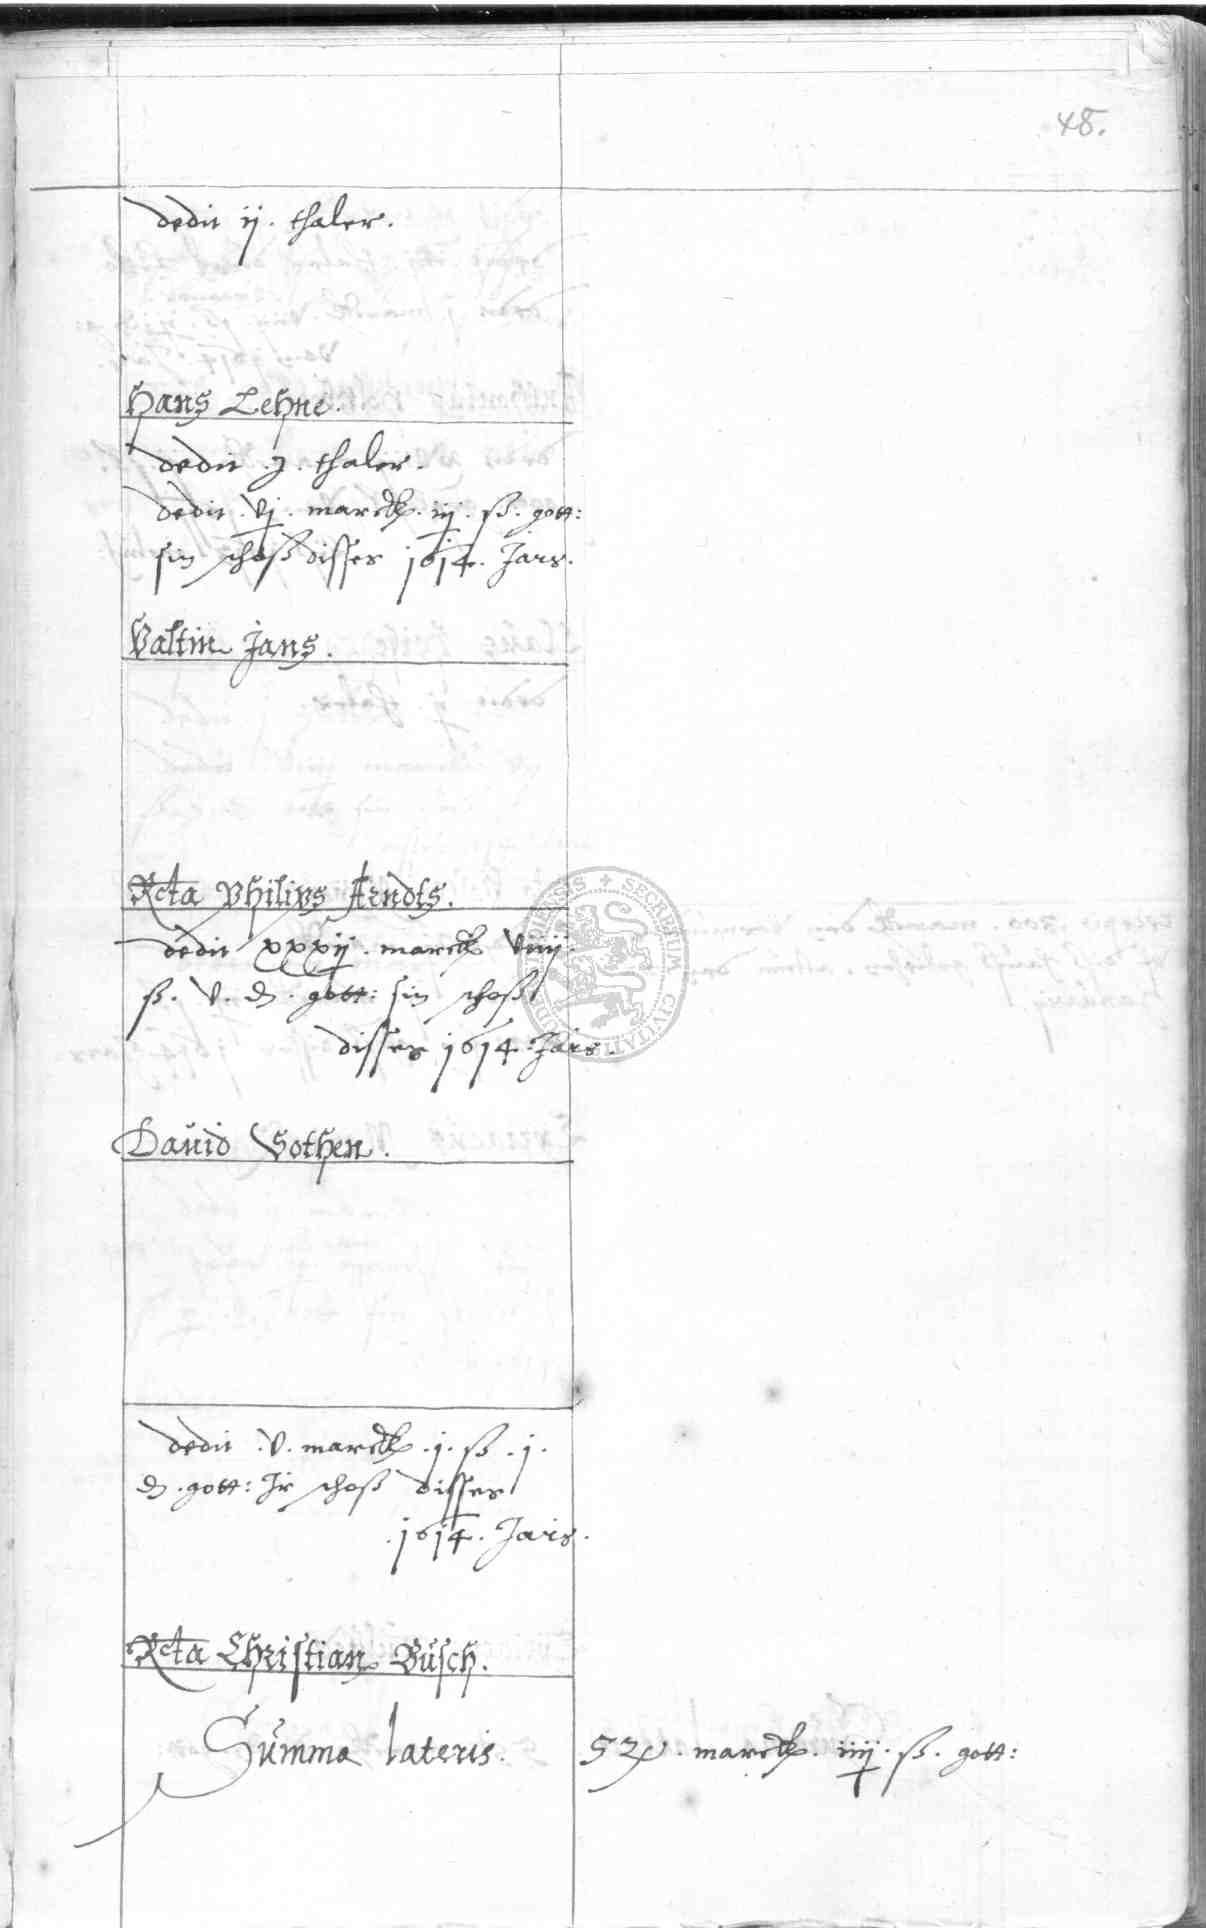 48.
dedit ij. thaler.
Hans Lehne.
dedit .j. thaler.
dedit .vj. marck. iij. ß. gott:
sin schoß disses 1614. Jars.
Valtin Jans.
Rcta Philips Arndts.
dedit xxxij. marck viiij.
ß. v. ₰. gott: sin schoß
disses 1614. Jars.
Dauid Vothen.
dedit .v. marck .j. ß .j.
₰. gott: Ir schoß disses
.1614. Jars.
Rcta Christian Busch.
Summa lateris. marck. iiij. ß. gott:
SECRETUM CIVITATIS